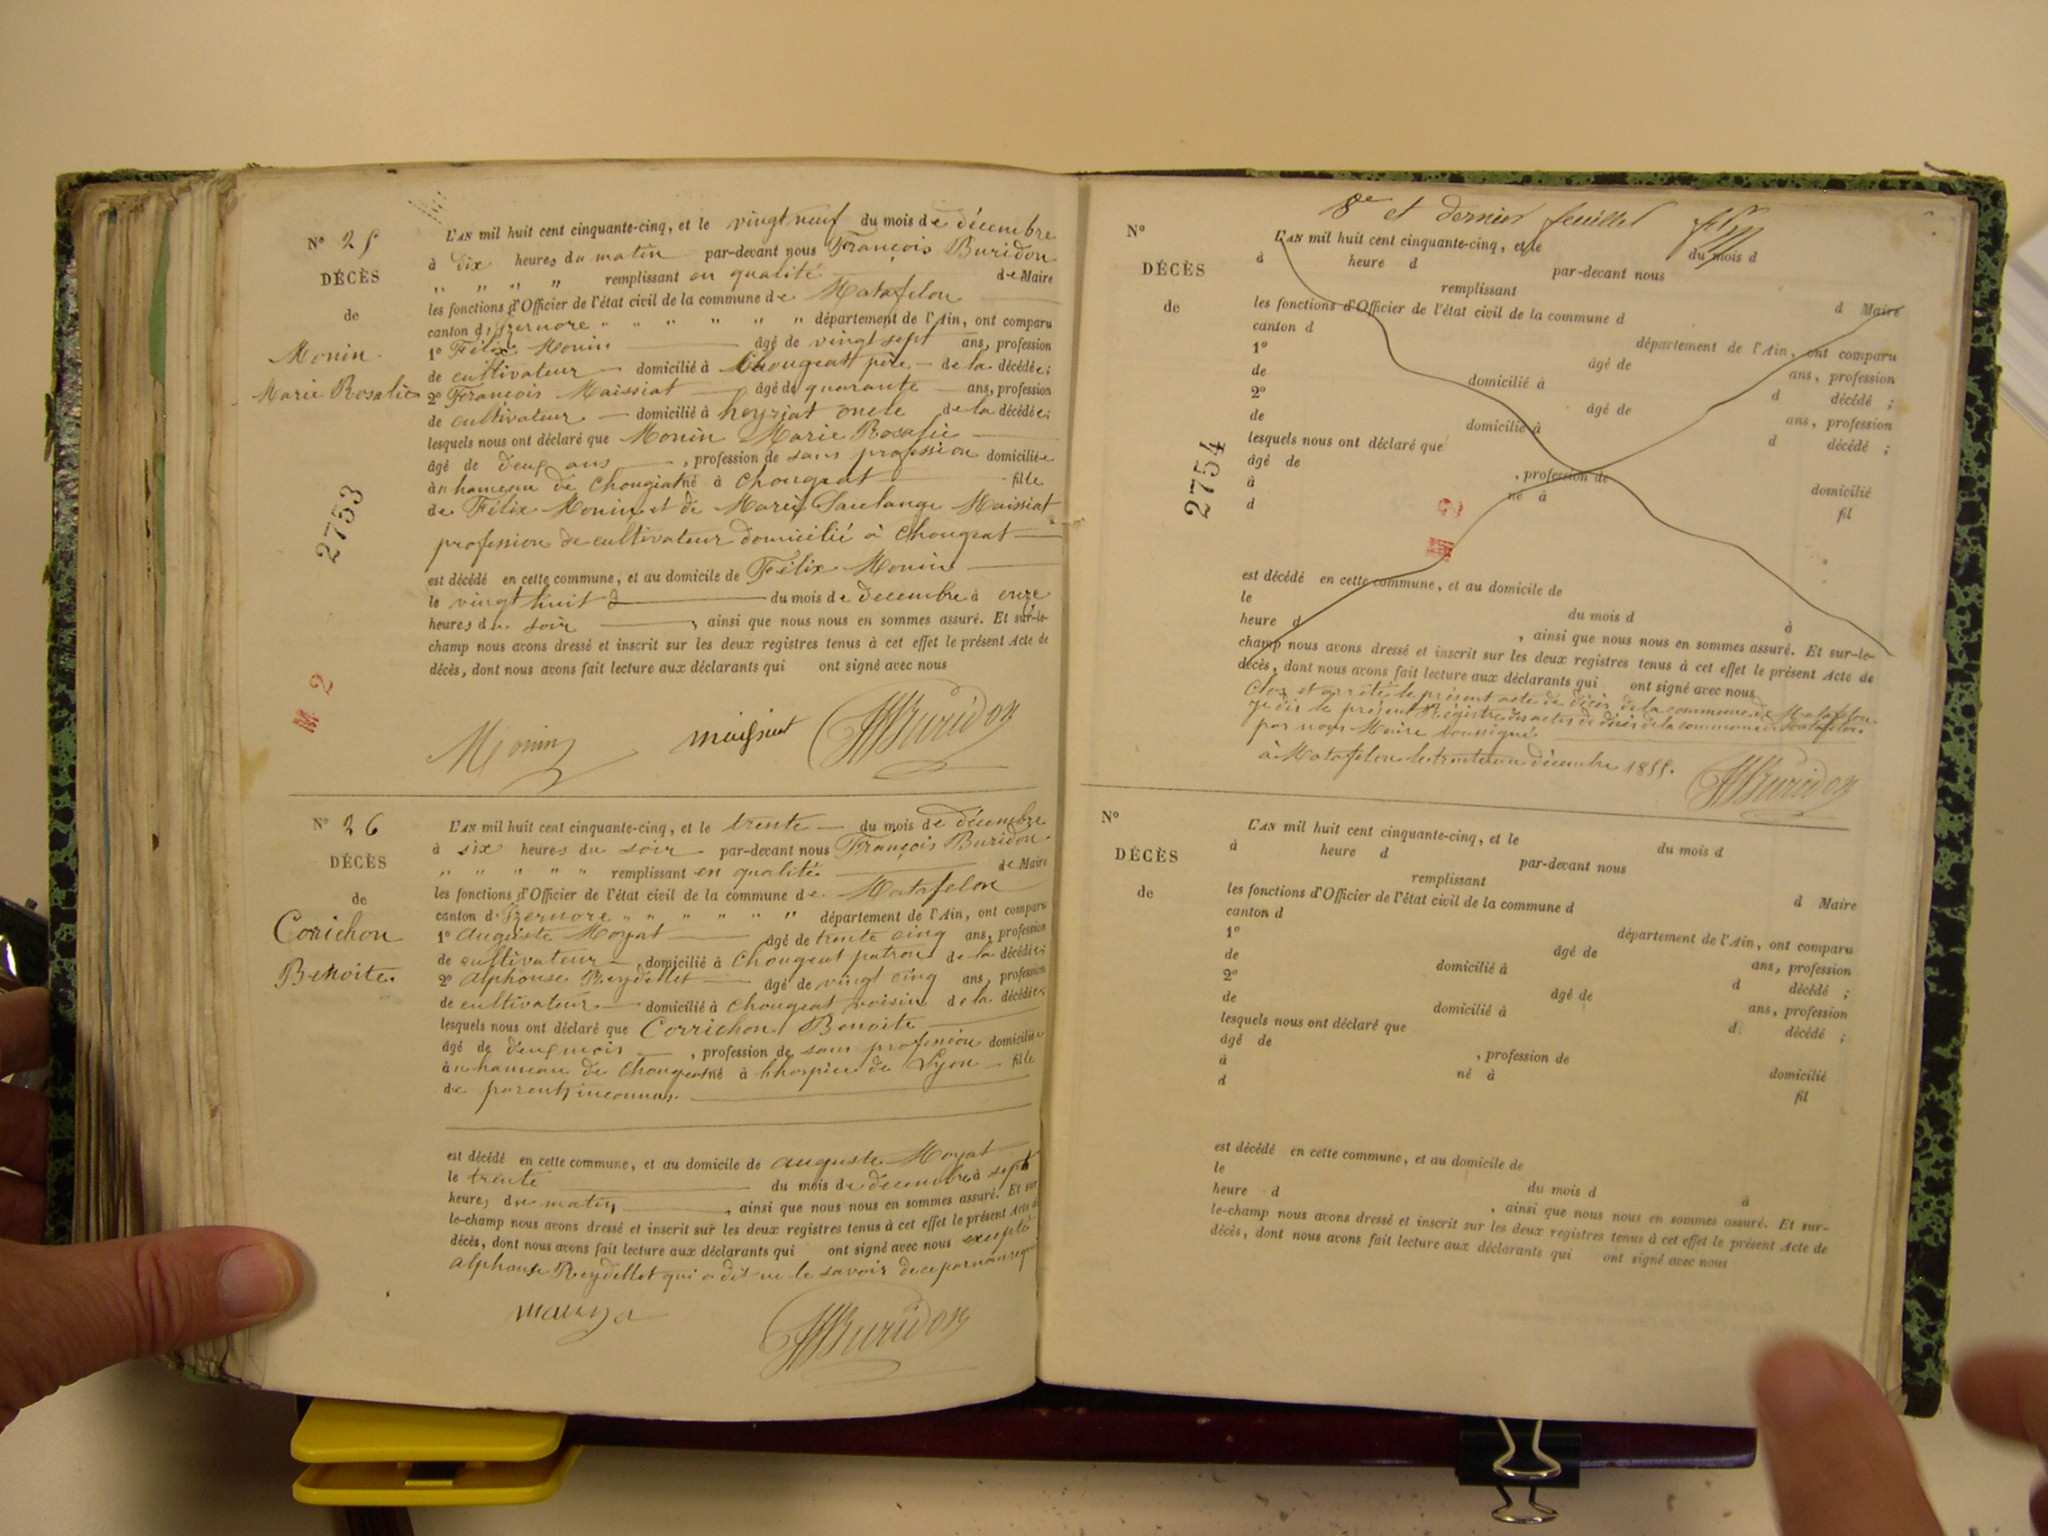 N° 25
DÉCÈS
de
Monin
Marie Rosalie
2753
M 2
L'AN mil huit cent cinquante-cinq, et le vingt neuf du mois de décembre
à dix heures du matin par-devant nous François Buridon
" " " " remplissant en qualité de Maire
les fonctions d'Officier de l'état civil de la commune de Matafelon
canton d'Izernore " " " " " département de l'Ain, ont comparu
1° Félix Monin âgé de vingt sept ans, profession
de cultivateur domicilié à Chougeat père de la décédée;
2° François Maissiat âgé de quarante ans, profession
de cultivateur domicilié à heyriat oncle de la décédée;
lesquels nous ont déclaré que Monin Marie Rosalie
âgé de deux ans, profession de sans profession domiciliée
à hameau de Chougiat né à Chougeat fille
de Félix Monin et de Marie Saulange Maissiat
profession de cultivateur domicilié à Chougeat
est décédé en cette commune, et au domicile de Félix Monin
le vingt huit du mois de decembre à onze
heures du soir, ainsi que nous nous en sommes assuré. Et sur-le-
champ nous avons dressé et inscrit sur les deux registres tenus à cet effet le présent Acte de
décès, dont nous avons fait lecture aux déclarants qui ont signé avec nous
Monin maissiat Buridon
N° 26
DÉCÈS
de
Corichon
Benoite
L'AN mil huit cent cinquante-cinq, et le trente du mois de décembre
à six heures du soir par-devant nous François Buridon
" " " " " remplissant en qualité de Maire
les fonctions d'Officier de l'état civil de la commune de Matafelon
canton d'Izernore " " " " " " département de l'Ain, ont comparu
1° Auguste Moyat âgé de trente cinq ans, profession
de cultivateur, domicilié à Chougeat patron de la décédée;
2° Alphonse Reydellet âgé de vingt cinq ans, profession
de cultivateur domicilié à Chougeat voisin de la décédée;
lesquels nous ont déclaré que Corrichon Benoite
âgé de deux mois, profession de sans profession domiciliée
à hameau de Chougeat né à l'hospice de Lyon fille
de parents inconnus.
est décédé en cette commune, et au domicile de Auguste Moyat
le trente du mois de decembre à sept
heures du matin, ainsi que nous nous en sommes assuré. Et sur
le-champ nous avons dressé et inscrit sur les deux registres tenus à cet effet le présent Acte de
décès, dont nous avons fait lecture aux déclarants qui ont signé avec nous excepté
Alphonse Reydellet qui a dit ne le savoir de ce par nous requi
Buridon
8e et dernier feuillet
N°
DÉCÈS
de
2754
M 2
L'AN mil huit cent cinquante-cinq, et le du mois d
à heure d par-devant nous
remplissant d Maire
les fonctions d'Officier de l'état civil de la commune d
canton d département de l'Ain, ont comparu
1° âgé de ans, profession
de domicilié à d décédé ;
2° âgé de ans, profession
de domicilié à d décédé ;
lesquels nous ont déclaré que
âgé de , profession de domicilié
à né à fil
d
est décédé en cette commune, et au domicile de
le du mois d à
heure d , ainsi que nous nous en sommes assuré. Et sur-le-
champ nous avons dressé et inscrit sur les deux registres tenus à cet effet le présent Acte de
décès, dont nous avons fait lecture aux déclarants qui ont signé avec nous
Clos et arrêté le présent acte de décès de la commune de Matafelon
je dis le présent Régistre des actes de décès de la commune de Matafelon
par nous Maire soussigné
à Matafelon le trente un décembre 1855.
Buridon
N°
DÉCÈS
de
L'AN mil huit cent cinquante-cinq, et le du mois d
à heure d par-devant nous
remplissant d Maire
les fonctions d'Officier de l'état civil de la commune d
canton d département de l'Ain, ont comparu
1° âgé de ans, profession
de domicilié à d décédé ;
2° âgé de ans, profession
de domicilié à d décédé ;
lesquels nous ont déclaré que
âgé de , profession de domicilié
à né à fil
d
est décédé en cette commune, et au domicile de
le du mois d à
heure d , ainsi que nous nous en sommes assuré. Et sur-
le-champ nous avons dressé et inscrit sur les deux registres tenus à cet effet le présent Acte de
décès, dont nous avons fait lecture aux déclarants qui ont signé avec nous